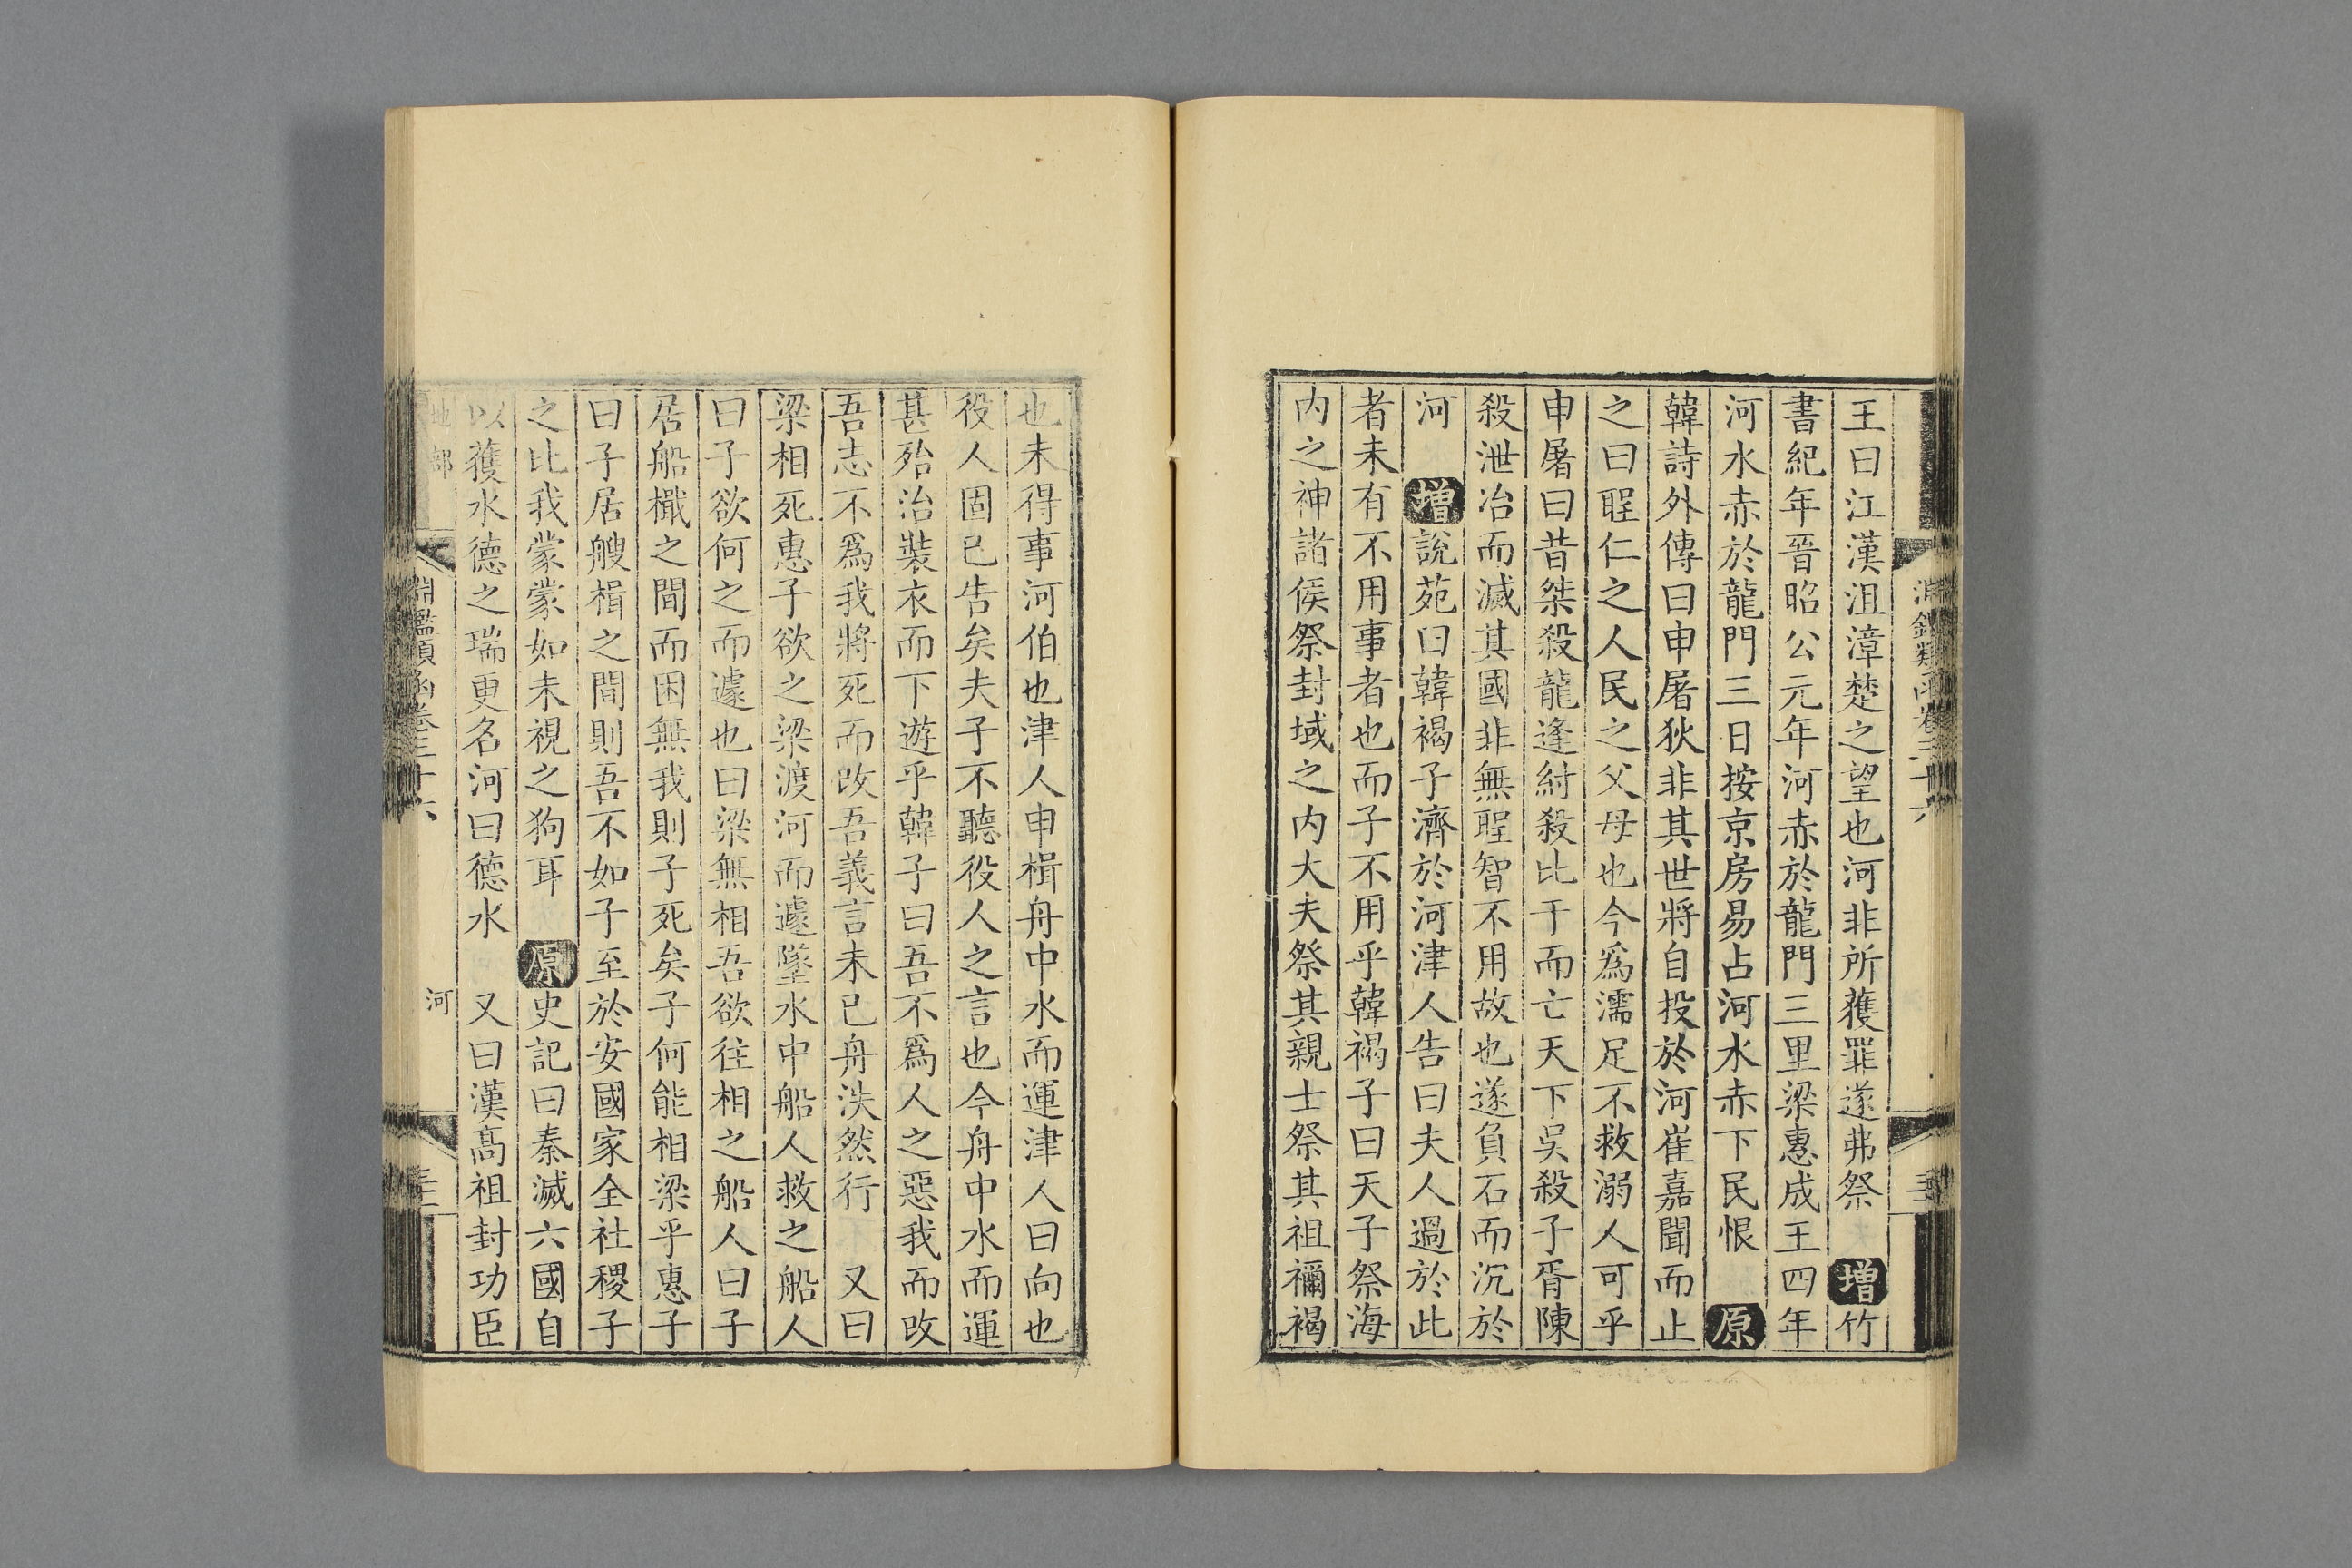 王曰江漢沮漳楚之望也河非所獲罪遂弗祭 增竹
書紀年晉昭公元年河赤於龍門三里梁惠成王四年
河水赤於龍門三日按京房易占河水赤下民恨 原
韓詩外傳曰申屠狄非其世將自投於河崔嘉聞而止
之曰聖仁之人民之父母也今爲濡足不救溺人可乎
申屠曰昔桀殺龍逢紂殺比干而亡天下吳殺子胥陳
殺泄冶而滅其國非無聖智不用故也遂負石而沉於
河 增說苑曰韓褐子濟於河津人告曰夫人過於此
者未有不用事者也而子不用乎韓褐子曰天子祭海
内之神諸侯祭封域之内大夫祭其親士祭其祖禰褐
也未得事河伯也津人申楫舟中水而運津人曰向也
役人固已告矣夫子不聽役人之言也今舟中水而運
甚殆治裝衣而下遊乎韓子曰吾不爲人之惡我而改
吾志不爲我將死而改吾義言未已舟泆然行 又曰
梁相死惠子欲之梁渡河而遽墜水中船人救之船人
曰子欲何之而遽也曰梁無相吾欲往相之船人曰子
居船檝之間而困無我則子死矣子何能相梁乎惠子
曰子居艘楫之間則吾不如子至於安國家全社稷子
之比我蒙蒙如未視之狗耳 原史記曰秦滅六國自
以獲水德之瑞更名河曰德水 又曰漢高祖封功臣
地部
淵鑑類函卷三十六
河